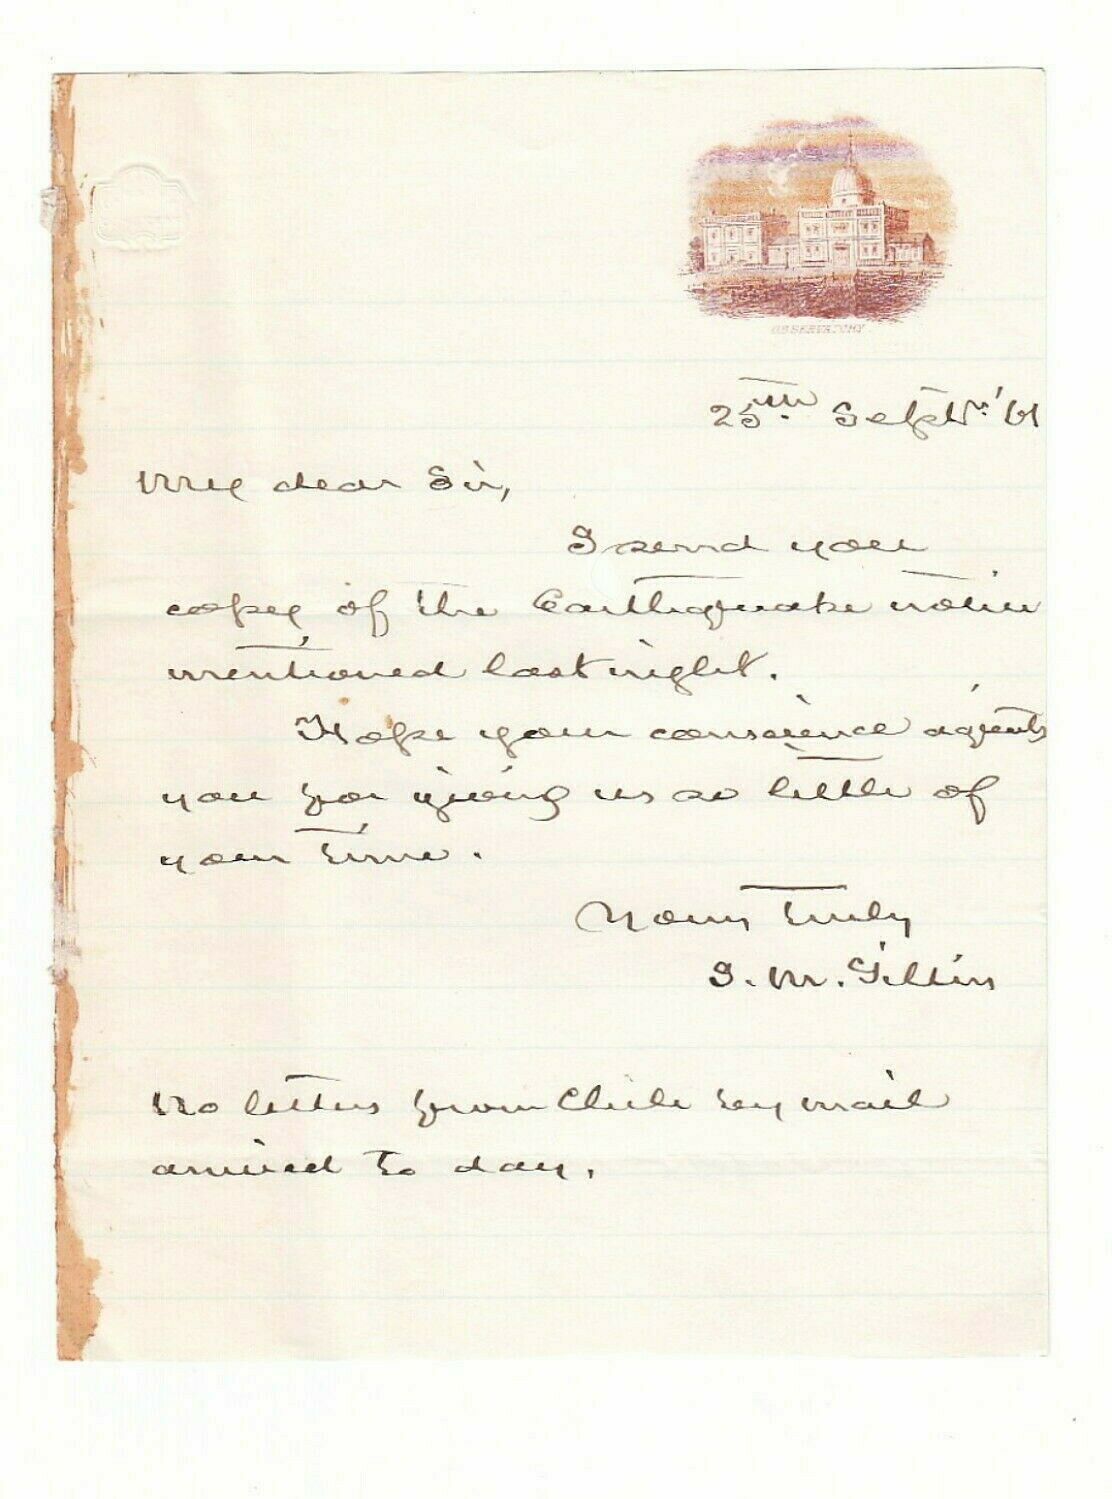 OBSERVATORY
25th. Septr. '61
My dear Sir,
I send you
copy of the Earthquake notice
mentioned last night.
Hope your conscience agents
you for giving us so little of
your time.
Yours truly
J. M. Gilliss
No letters from Chile by mail
arrived to day.